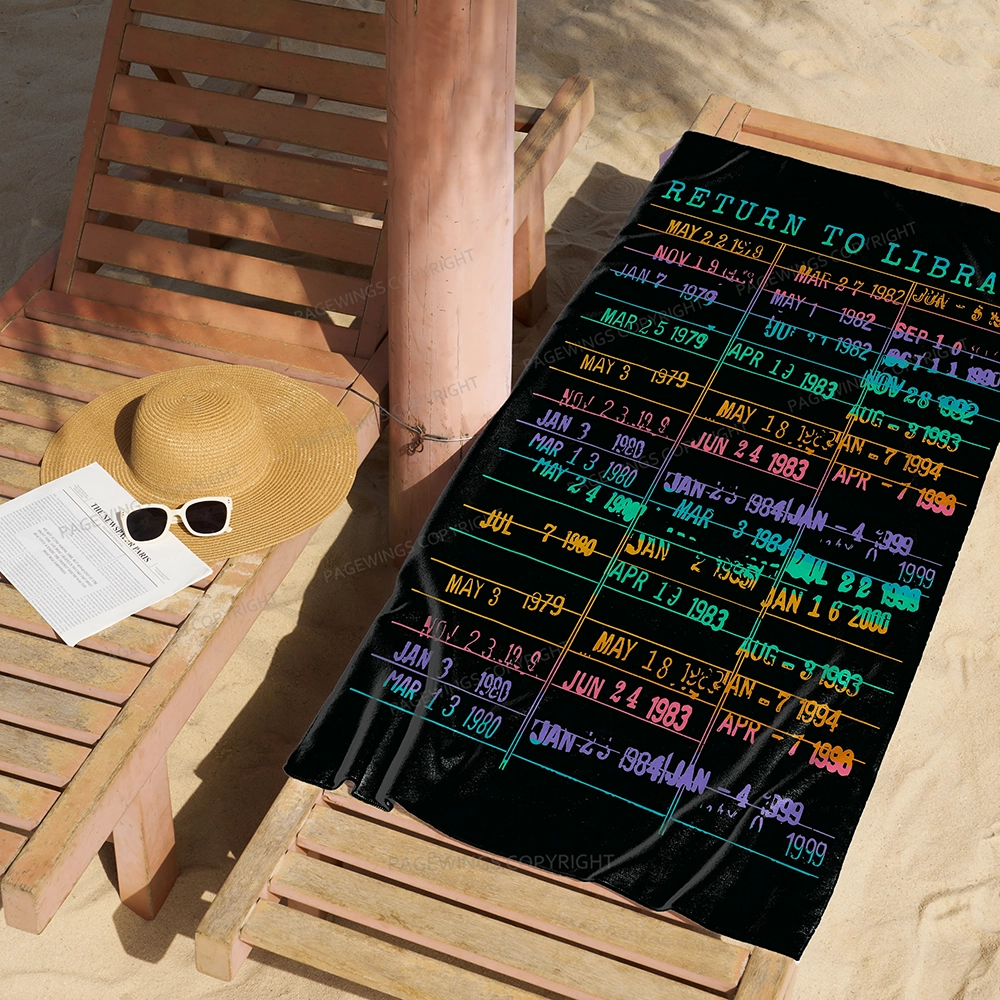 RETURN TO LIBRA
MAY 22 1979
NOV 19
JAN 7 1979
MAR 25 1979
MAY 3 1979
NOV 23
JAN 3 1980
MAR 13 1980
MAY 24
JUL 7 1980
MAY 3 1979
NOV 23
JAN 3 1980
MAR 13 1980
MAR 27 1982
MAY 1 1982
1982
APR 19 1983
MAY 18
JUN 24 1983
JAN 23 1984
MAR 3 1984
JAN 2
APR 19 1983
MAY 18
JUN 24 1983
JAN 23 1984
JUN - 5
SEP 10
OCT 11
NOV 28 1992
AUG - 3 1993
JAN - 7 1994
APR - 1 1996
JAN - 4 1999
1999
JUL 22 1999
JAN 16 2000
AUG - 3 1993
JAN - 7 1994
APR - 1 1996
JAN - 4 1999
1999
THE NEWSPAPER PARIS
PAGEWINGS COPYRIGHT